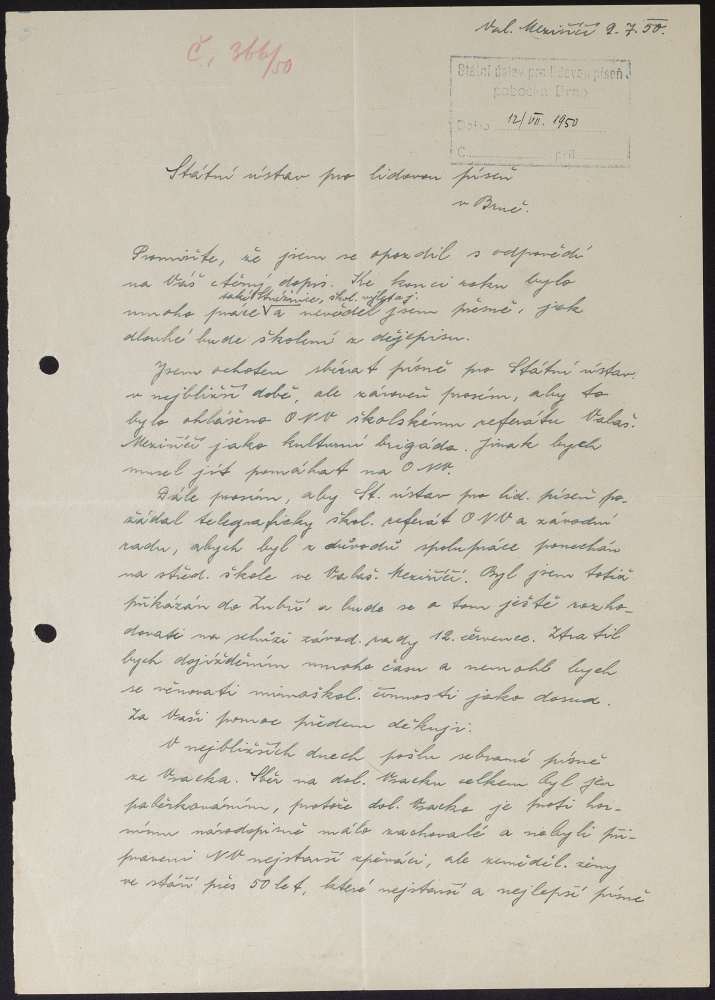 Val. Meziříčí 9.7.50.
Č. 366/50
Státní ústav pro lidovou píseň
pobočka Brno
Došlo 12/VII. 1950
Č. příl.
Státní ústav pro lidovou píseň
v Brně.
Promiňte, že jsem se opozdil s odpovědí
na Váš ctěný dopis. Ke konci roku bylo
také škol. výlety aj.
mnoho práce a nevěděl jsem přesně, jak
dlouhé bude školení z dějepisu.
Jsem ochoten sbírat písně pro Státní ústav
v nejbližší době, ale zároveň prosím, aby to
bylo ohlášeno ONV školskému referátu Valaš.
Meziříčí jako kulturní brigáda. Jinak bych
musel jít pomáhat na ONV.
Dále prosím, aby St. ústav pro lid. píseň po-
žádal telegraficky škol. referát ONV a závodní
radu, abych byl z důvodů spolupráce ponechán
na střed. škole ve Valaš. Meziříčí. Byl jsem totiž
přikázán do Zubří a bude se o tom ještě rozho-
dovati na schůzi závod. rady 12. července. Ztratil
bych dojížděním mnoho času a nemohl bych
se věnovati mimoškol. činnosti jako dosud.
Za Vaši pomoc předem děkuji.
V nejbližších dnech pošlu sebrané písně
ze Vsacka. Sběr na dol. Vsacku celkem byl jen
paběrkováním, protože dol. Vsacko je proti hor-
nímu národopisně málo zachovalé a nebyli při-
praveni NV nejstarší zpěváci, ale zeměděl. ženy
ve stáří přes 50 let, které nejstarší a nejlepší písně